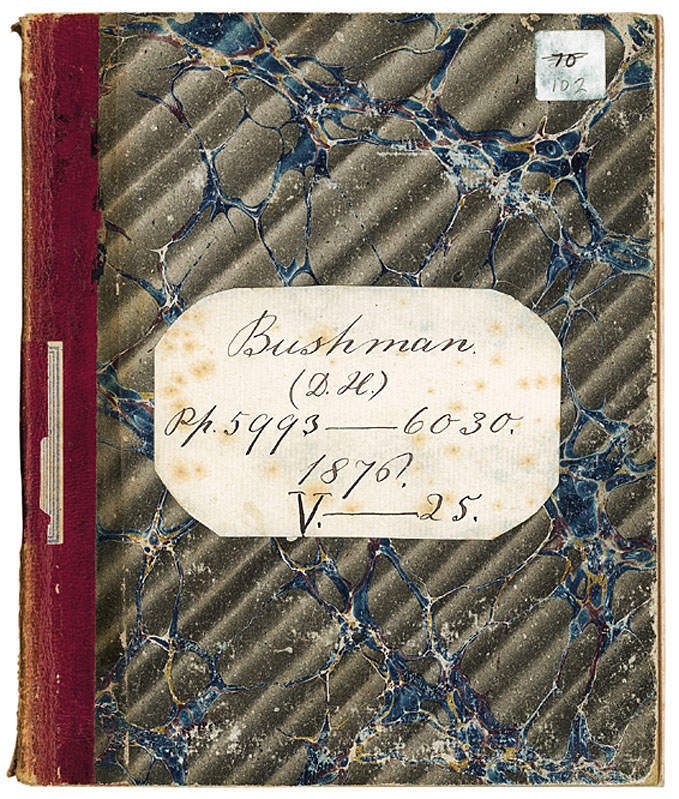 10
102
Bushman.
(D. H.)
Pp. 5993 — 6030.
1876.
V. — 25.